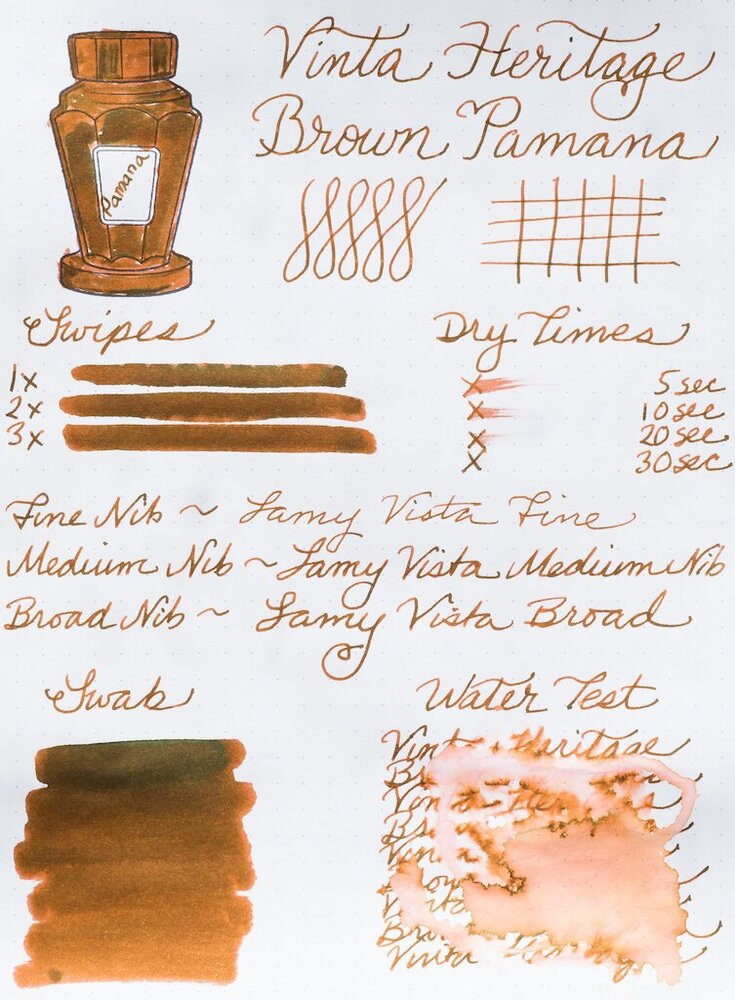 Vinta Heritage
Brown Pamana
Pamana
Swipes
1x
2x
3x
Dry Times
x 5 sec
x 10 sec
x 20 sec
x 30 sec
Fine Nib ~ Lamy Vista Fine
Medium Nib ~ Lamy Vista Medium Nib
Broad Nib ~ Lamy Vista Broad
Swab
Water Test
Vinta Heritage
Vinta
Vinta